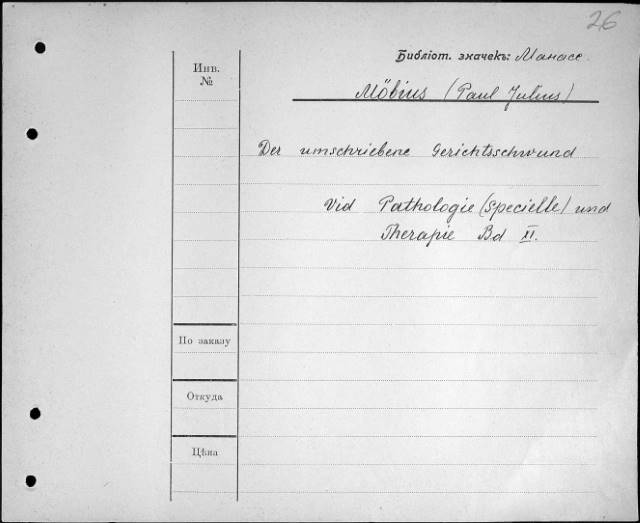 26
Библіот. значекъ: Манасс.
Инв.
№
Möbius (Paul Julius)
Der umschriebene Gerichtsschwund
Vid Pathologie (Specielle) und
Therapie Bd XI.
По заказу
Откуда
Цѣна